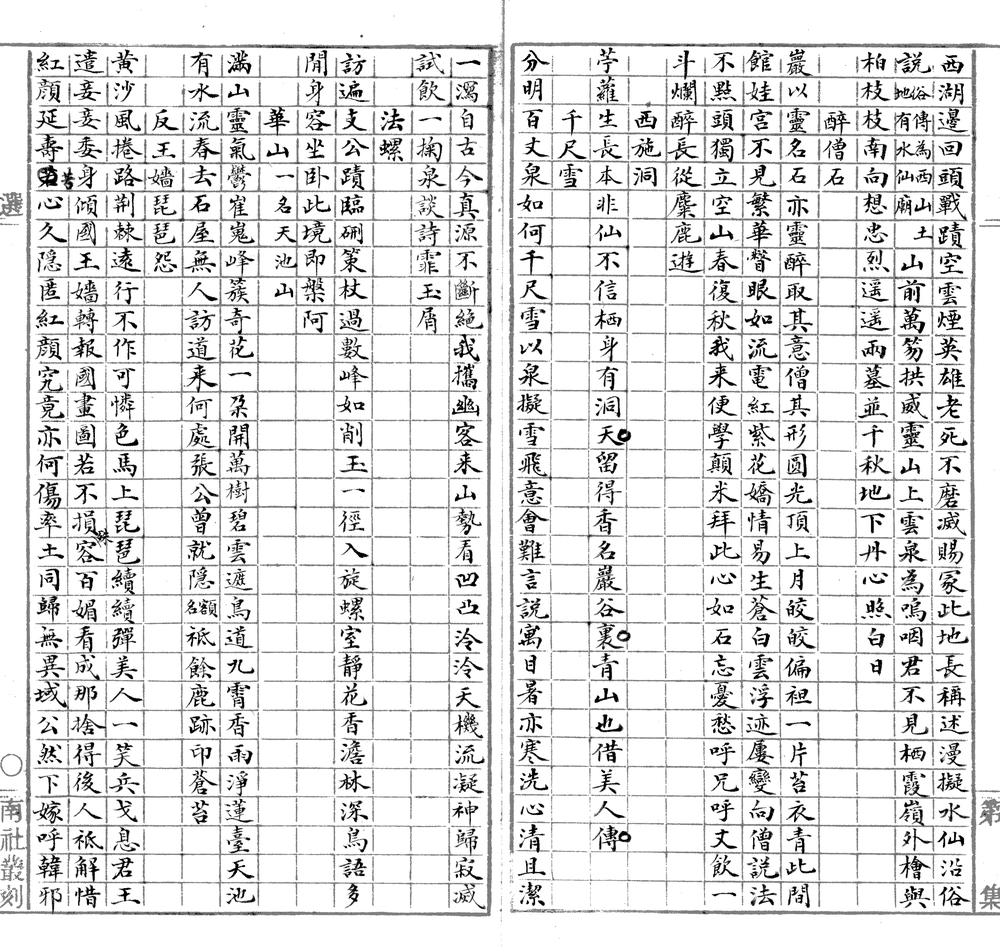 西湖邊回頭戰蹟空雲煙英雄老死不磨滅賜冢此地長稱述漫擬水仙沿俗
說俗傳為西山土地有水仙廟山前萬笏拱威靈山上雲泉為嗚咽君不見栖霞嶺外檜與
柏枝枝南向想忠烈遥遥兩墓並千秋地下丹心照白日
醉僧石
巖以靈名石亦靈醉取其意僧其形圆光頂上月皎皎偏袒一片苔衣青此間
館娃宮不見繁華瞥眼如流電紅紫花嬌情易生蒼白雲浮迹屢變向僧說法
不㸃頭獨立空山春復秋我来便學顛米拜此心如石忘憂愁呼兄呼丈飲一
斗爛醉長從麋鹿遊
西施洞
苧蘿生長本非仙不信栖身有洞天留得香名巖谷裏青山也借美人傳
千尺雪
分明百丈泉如何千尺雪以泉擬雪飛意會難言説寓目暑亦寒洗心清且潔
一瀉自古今真源不斷絕我攜幽客来山勢看凹凸泠泠天機流凝神歸寂滅
試飲一掬泉談詩霏玉屑
法螺
訪遍支公蹟臨硎策杖過數峰如削玉一徑入旋螺室靜花香澹林深鳥語多
閒身容坐卧此境即槃阿
華山一名天池山
滿山靈氣鬱崔嵬峰簇奇花一朶開萬樹碧雲遮鳥道九霄香雨淨蓮臺天池
有水流春去石屋無人訪道来何處張公曾就隐名額祗餘鹿跡印蒼苔
反王嬙琵琶怨
黄沙風捲路荆棘遠行不作可憐色馬上琵琶續續彈美人一笑兵戈息君王
遣妾妾委身傾國王嬙轉報國畫圖若不損容百媚看成那捨得後人祗解惜
紅顔延壽苦心久隐匿紅顔究竟亦何傷率土同歸無異域公然下嫁呼韓邪
選
南社叢刻
第
集